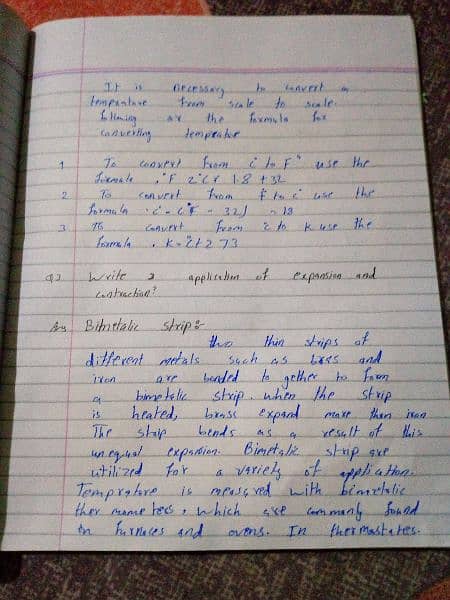 It is necessary to convert a
tempratare from scale to scale.
following ar the formula for
converting tempratur
1 To convert from c to F° use the
formula . °F = °C x 1.8 + 32
2 To convert from f to c use the
formula . c = (°F - 32) ÷ 18
3 To convert from c to K use the
formula . K = c + 273
Q3 Write 2 application of expansion and
contraction?
Ans Bimetalic strip:-
two thin strips of
different metals such as brass and
iron are bonded to gether to form
a bimetalic strip. when the strip
is heated, brass expand more than iron
The strip bends as a result of this
unequal expansion. Bimetalic strip are
utilized for a variety of application.
Temprature is measured with bimetalic
ther mometers, which are commonly found
in furnaces and ovens. In thermostates.